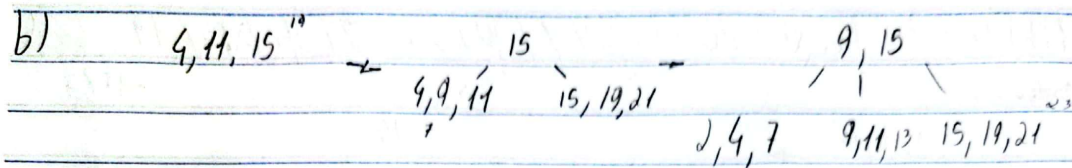 b) 4, 11, 15 19 → 15 → 9, 15
4, 9, 11 15, 19, 21
7
2, 4, 7 9, 11, 13 15, 19, 21 23